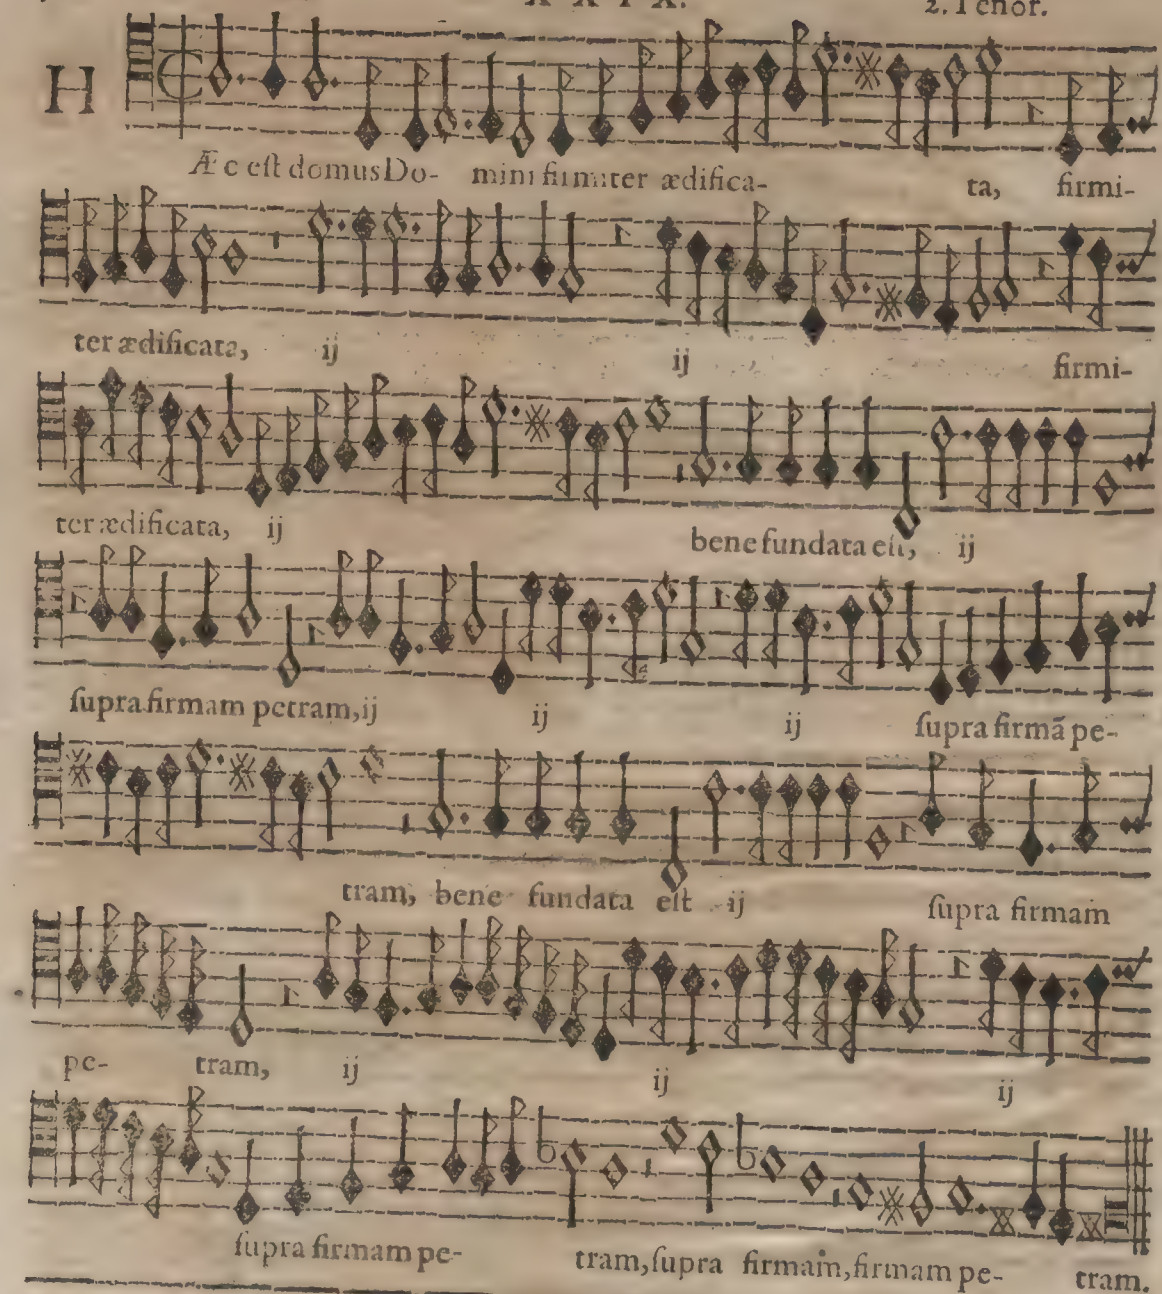 X X I X. 2. Tenor.
H
Æc eſt domus Do- mini firmiter ædifica- ta, firmi-
ter ædificata, ij ij firmi-
ter ædificata, ij bene fundata eſt, ij
ſupra firmam petram, ij ij ij ſupra firmã pe-
tram, bene fundata eſt ij ſupra firmam
pe- tram, ij ij ij
ſupra firmam pe- tram, ſupra firmam, firmam pe- tram.